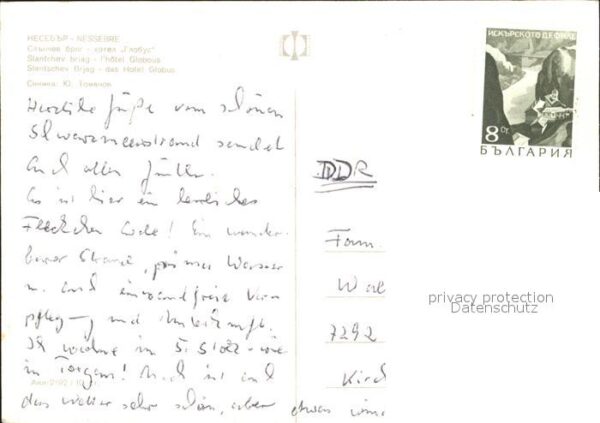 НЕСЕБЪР - NESSEBRE
Слънчев бряг - хотел „Глобус"
Slantchev briag - l'hôtel Globus
Slantschev Brjag - das Hotel Globus
Снимка: Ю. Томанов
ИСКЪРСКОТО ДЕФИЛЕ
8 ст.
БЪЛГАРИЯ
Herzliche Grüße vom schönen
Schwarzmeerstrand sendet
Euch allen
Es ist hier ein herrliches
Fleckchen Erde! Ein wunder-
barer Strand, prima Wasser
u. auch einwandfreie Ver-
pfleg-g und Unterkunft.
Ich wohne im 5. Stock - wie
in Torgau! Noch ist auch
das Wetter sehr schön, aber etwas
DDR
Fam.
7292
privacy protection
Datenschutz